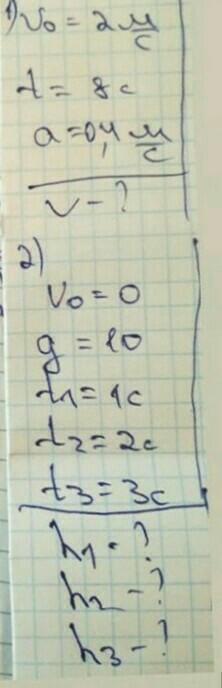 1) v₀ = 2 м/с
t = 8с
a = 0,4 м/с
v - ?
2)
v₀ = 0
g = 10
t₁ = 1с
t₂ = 2с
t₃ = 3с
h₁ - ?
h₂ - ?
h₃ - ?